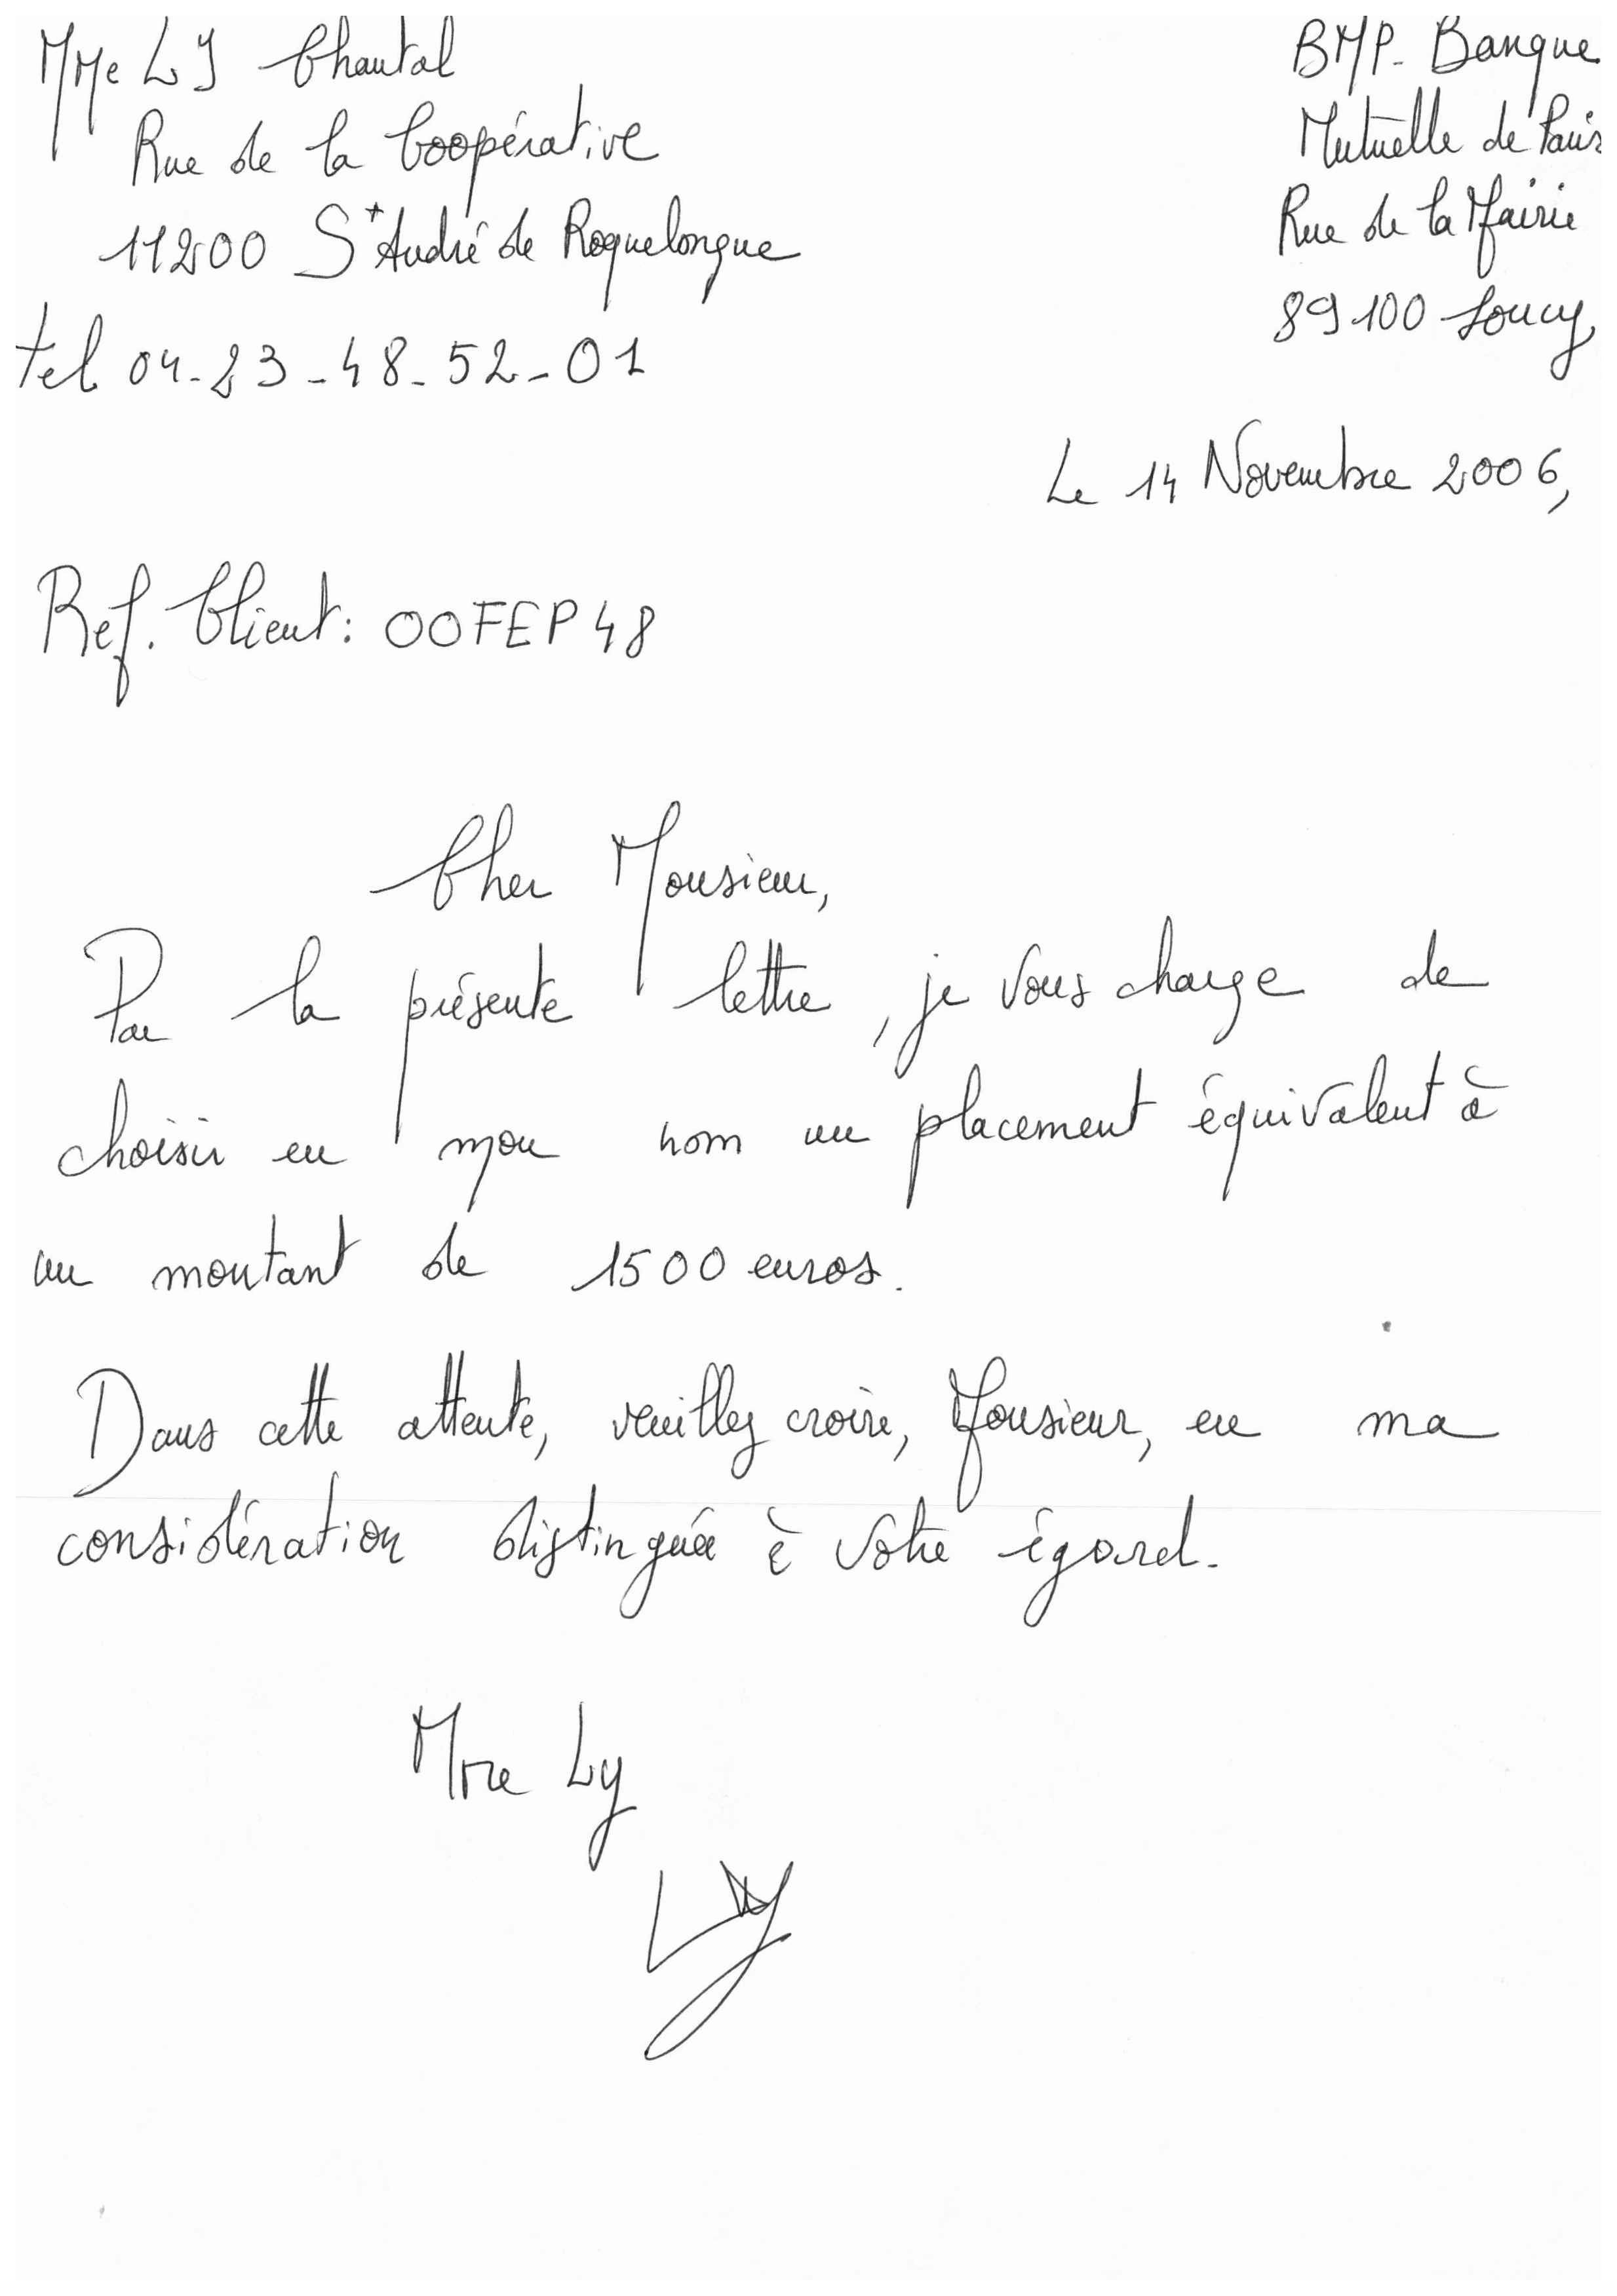 MMe LY Chantal
Rue de la Coopérative
11200 St André de Roquelongue
tel 04-23-48-52-01
BMP- Banque
Mutuelle de Paris
Rue de la Mairie
89100 Soucy,
Le 14 Novembre 2006,
Ref. Client: 00FEP48
Cher Monsieur,
Par la présente lettre, je vous charge de
choisir en mon nom un placement équivalent à
un montant de 1500 euros.
Dans cette attente, veuillez croire, Monsieur, en ma
considération distinguée à votre égard.
Mme Ly
Ly